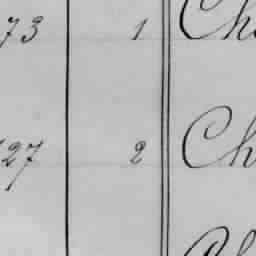 73 1 Ch
27 2 Ch